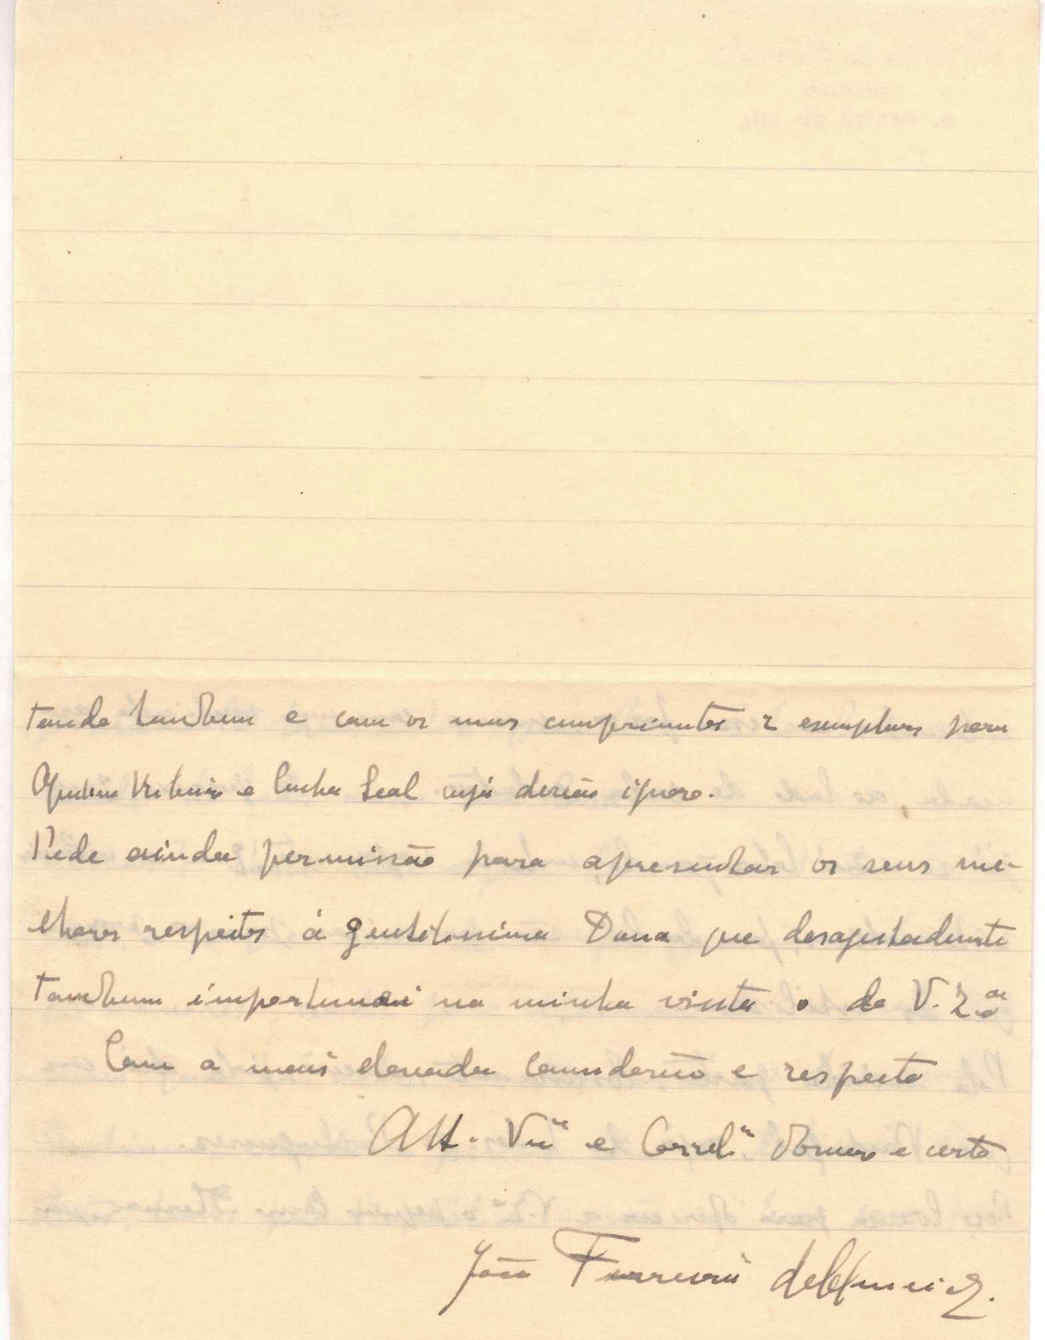 tando tambem e com os meus cumprimentos 2 exemplares para
e Cunha Leal cuja direcão ignoro.
Pede ainda permissão para apresentar os seus me-
lhores respeitos á gentilissima Dama que desageitadamente
tambem importunei na minha visita a de V. Ex.ª
Com a mais elevada consideração e respeito
Att. Vn.or e Correl. obscuro e certo
João Ferreira d'Almeida.